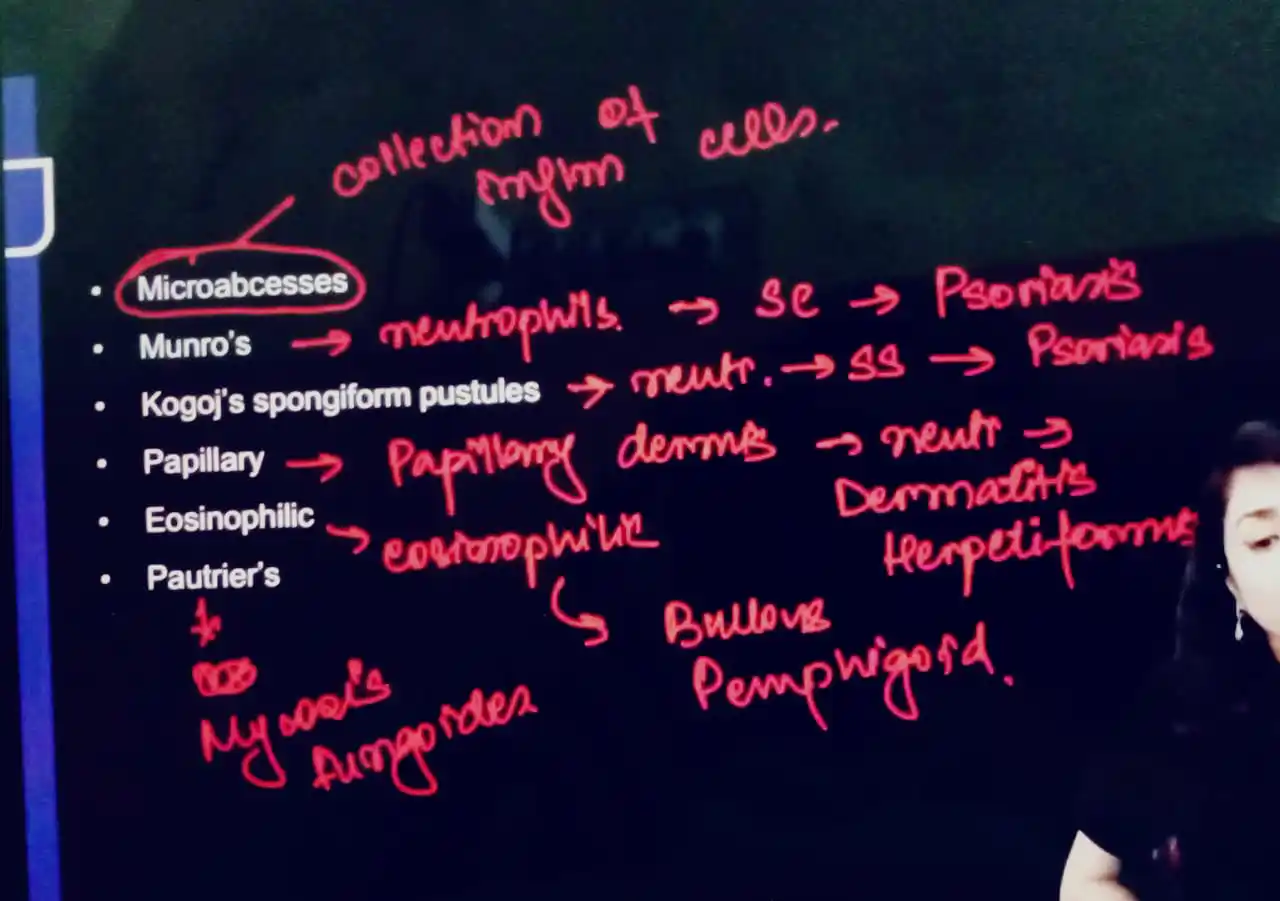 collection of
inflm cells.
• Microabcesses
• Munro's → neutrophils. → SC → Psoriasis
• Kogoj's spongiform pustules → neutr. → SS → Psoriasis
• Papillary → Papillary dermis → neutr →
Dermatitis
Herpetiformis
• Eosinophilic → eosinophilic
• Pautrier's
Bullous
Pemphigoid.
Mycosis
fungoides